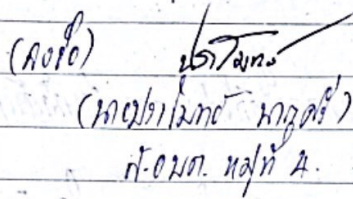 (ลงชื่อ) ปราโมทย์
(นายปราโมทย์ นาคศรี)
ส.อบต. หมู่ที่ 4.